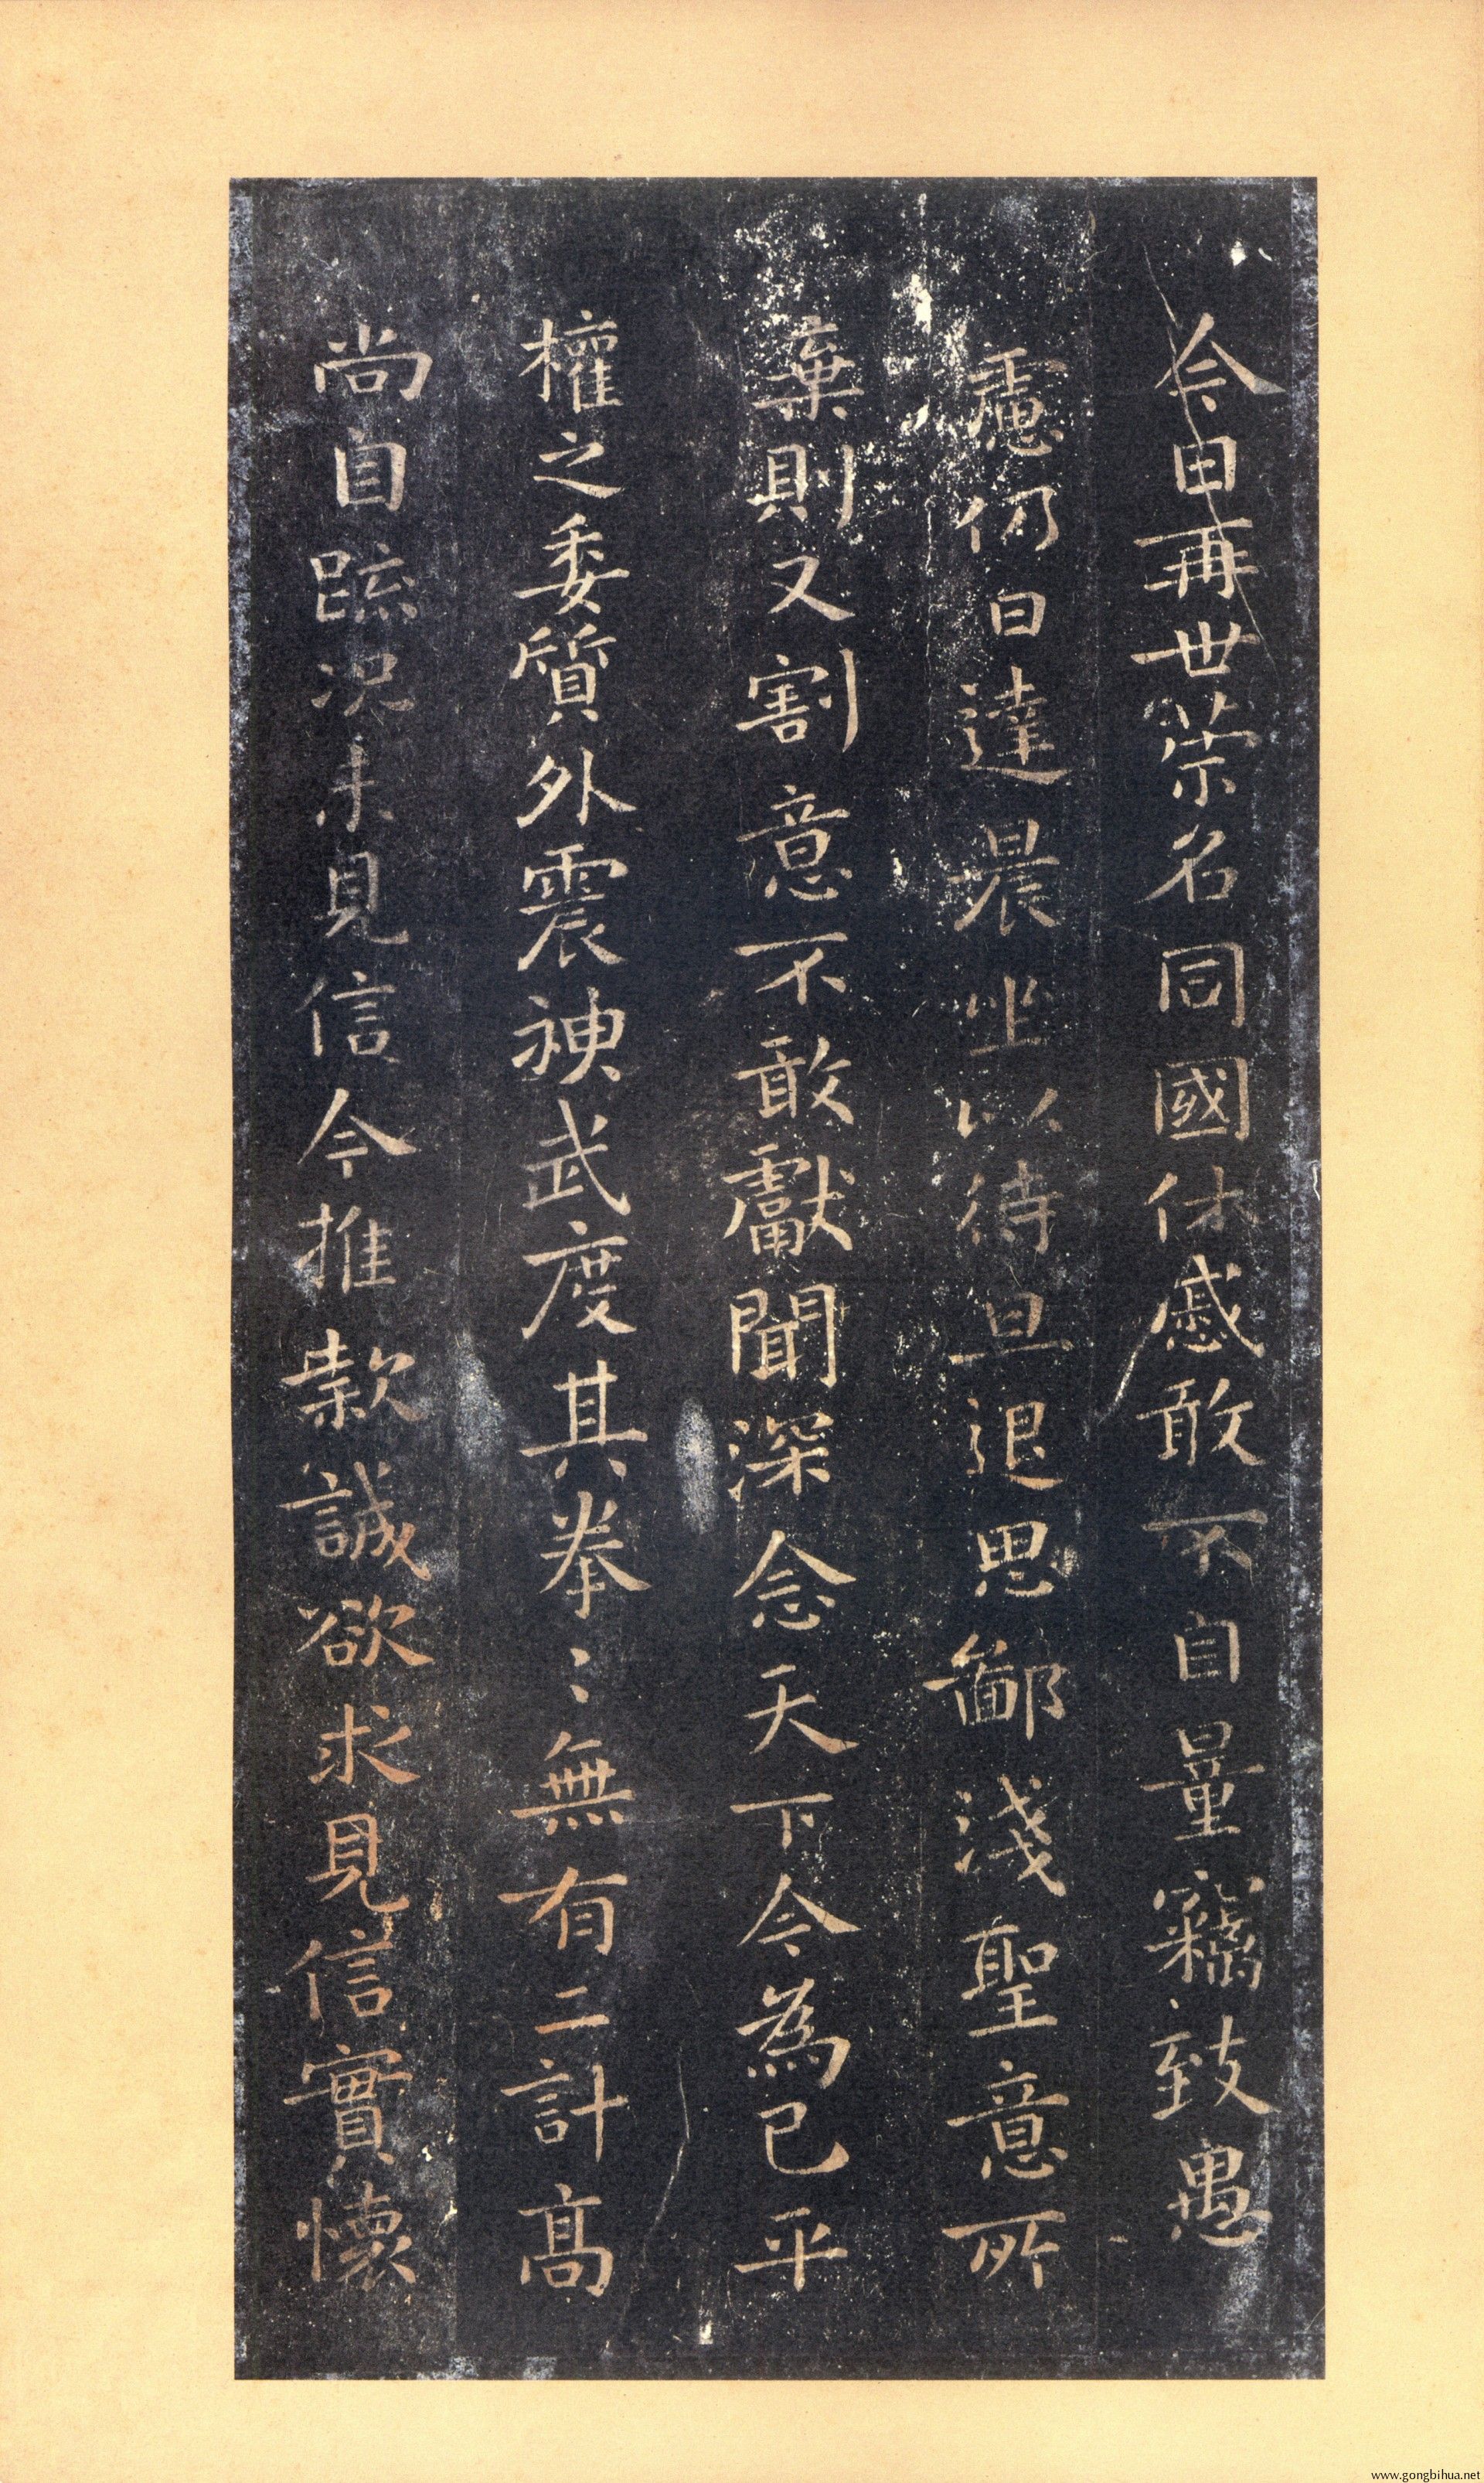 今由再世榮名同國休慼敢不自量竊致愚
慮仍日達晨坐以待旦退思鄙淺聖意所
棄則又割意不敢獻聞深念天下今為已平
權之委質外震神武度其拳〻無有二計高
尚自疏況未見信今推款誠欲求見信實懷
www.gongbihua.net